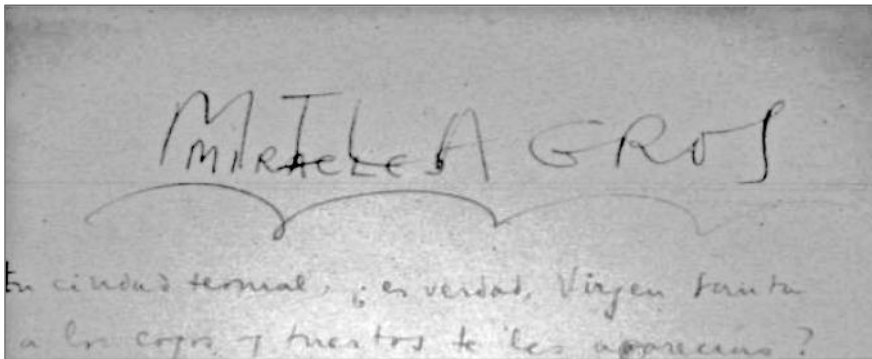 MILAGROS
MIRACLES
En ciudad termal, ¿es verdad, Virgen Santa
a los cojos y tuertos te les aparecías?